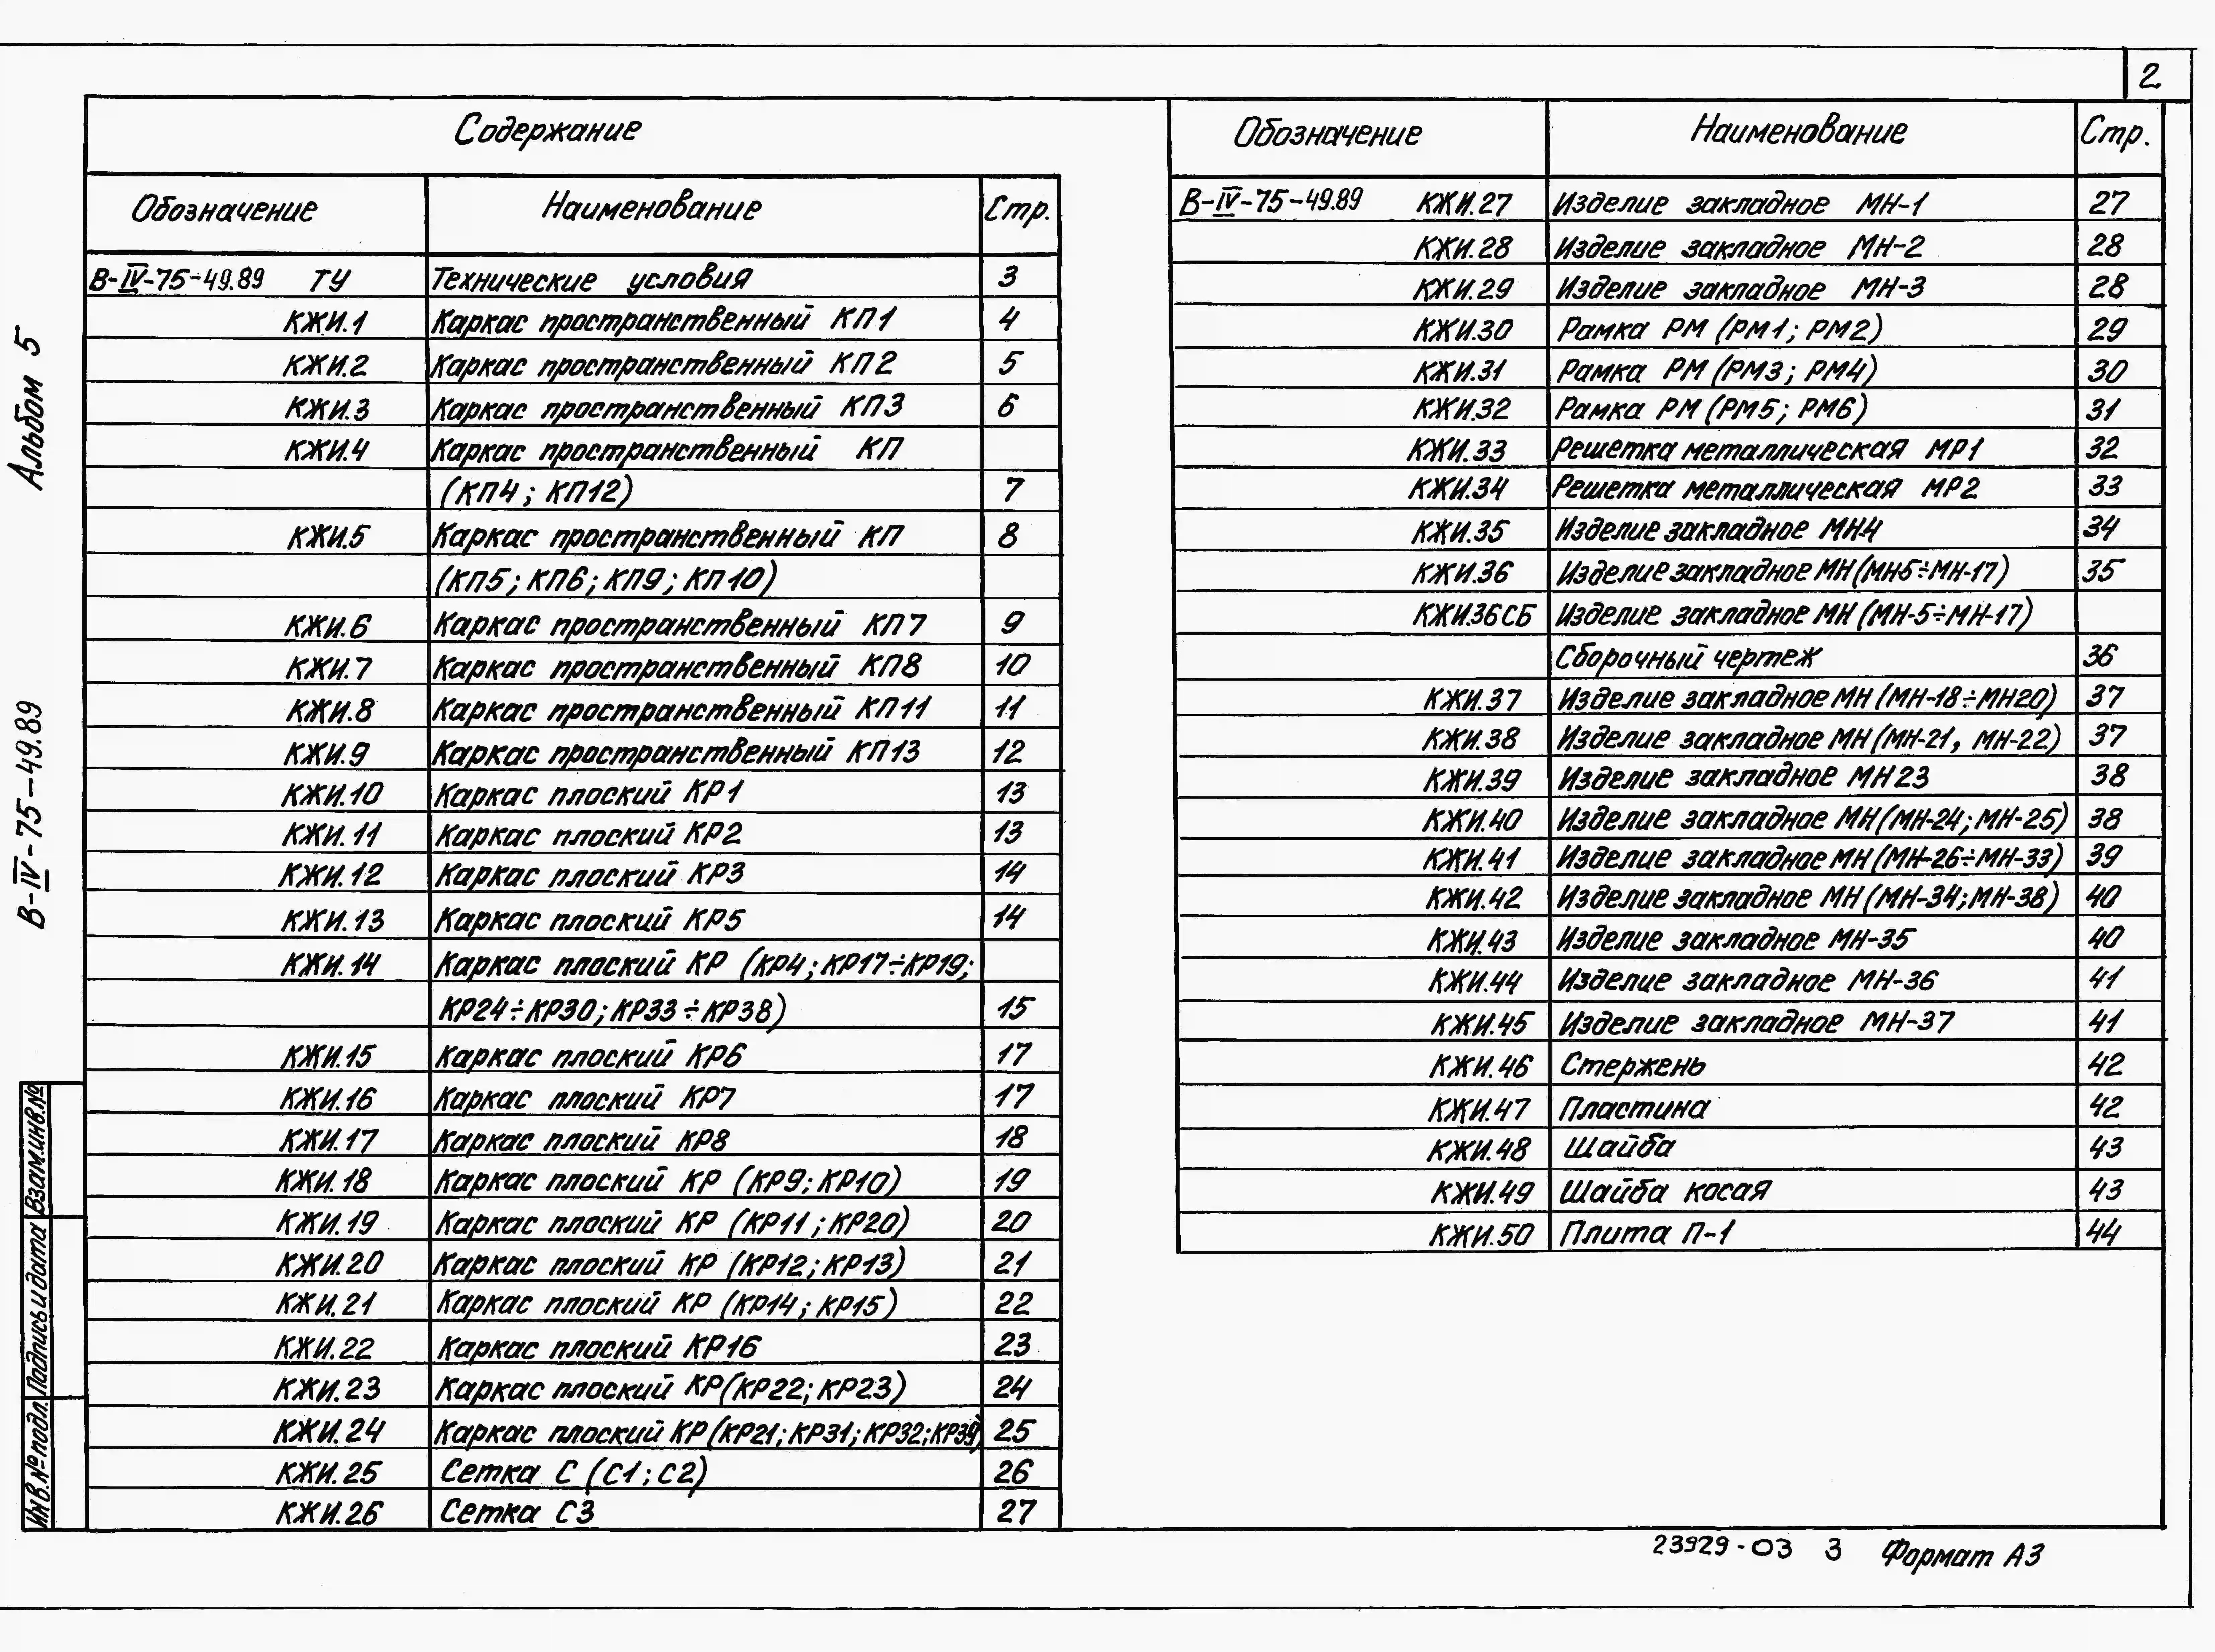 2
Содержание
Обозначение Наименование Стр.
В-IV-75-49.89 ТУ Технические условия 3
КЖИ.1 Каркас пространственный КП1 4
КЖИ.2 Каркас пространственный КП2 5
КЖИ.3 Каркас пространственный КП3 6
КЖИ.4 Каркас пространственный КП
(КП4; КП12) 7
КЖИ.5 Каркас пространственный КП 8
(КП5; КП6; КП9; КП10)
КЖИ.6 Каркас пространственный КП7 9
КЖИ.7 Каркас пространственный КП8 10
КЖИ.8 Каркас пространственный КП11 11
КЖИ.9 Каркас пространственный КП13 12
КЖИ.10 Каркас плоский КР1 13
КЖИ.11 Каркас плоский КР2 13
КЖИ.12 Каркас плоский КР3 14
КЖИ.13 Каркас плоский КР5 14
КЖИ.14 Каркас плоский КР (КР4; КР17÷КР19;
КР24÷КР30; КР33÷КР38) 15
КЖИ.15 Каркас плоский КР6 17
КЖИ.16 Каркас плоский КР7 17
КЖИ.17 Каркас плоский КР8 18
КЖИ.18 Каркас плоский КР (КР9; КР10) 19
КЖИ.19 Каркас плоский КР (КР11; КР20) 20
КЖИ.20 Каркас плоский КР (КР12; КР13) 21
КЖИ.21 Каркас плоский КР (КР14; КР15) 22
КЖИ.22 Каркас плоский КР16 23
КЖИ.23 Каркас плоский КР(КР22; КР23) 24
КЖИ.24 Каркас плоский КР(КР21; КР31; КР32; КР39) 25
КЖИ.25 Сетка С (С1; С2) 26
КЖИ.26 Сетка С3 27
Обозначение Наименование Стр.
В-IV-75-49.89 КЖИ.27 Изделие закладное МН-1 27
КЖИ.28 Изделие закладное МН-2 28
КЖИ.29 Изделие закладное МН-3 28
КЖИ.30 Рамка РМ (РМ1; РМ2) 29
КЖИ.31 Рамка РМ (РМ3; РМ4) 30
КЖИ.32 Рамка РМ (РМ5; РМ6) 31
КЖИ.33 Решетка металлическая МР1 32
КЖИ.34 Решетка металлическая МР2 33
КЖИ.35 Изделие закладное МН4 34
КЖИ.36 Изделие закладное МН(МН5÷МН-17) 35
КЖИ.36СБ Изделие закладное МН (МН-5÷МН-17)
Сборочный чертеж 36
КЖИ.37 Изделие закладное МН (МН-18÷МН20) 37
КЖИ.38 Изделие закладное МН (МН-21, МН-22) 37
КЖИ.39 Изделие закладное МН23 38
КЖИ.40 Изделие закладное МН(МН-24; МН-25) 38
КЖИ.41 Изделие закладное МН (МН-26÷МН-33) 39
КЖИ.42 Изделие закладное МН (МН-34; МН-38) 40
КЖИ.43 Изделие закладное МН-35 40
КЖИ.44 Изделие закладное МН-36 41
КЖИ.45 Изделие закладное МН-37 41
КЖИ.46 Стержень 42
КЖИ.47 Пластина 42
КЖИ.48 Шайба 43
КЖИ.49 Шайба косая 43
КЖИ.50 Плита П-1 44
Альбом 5
В-IV-75-49.89
Взам.инв.№
Подпись и дата
Инв.№ подл.
23929-03 3 Формат А3